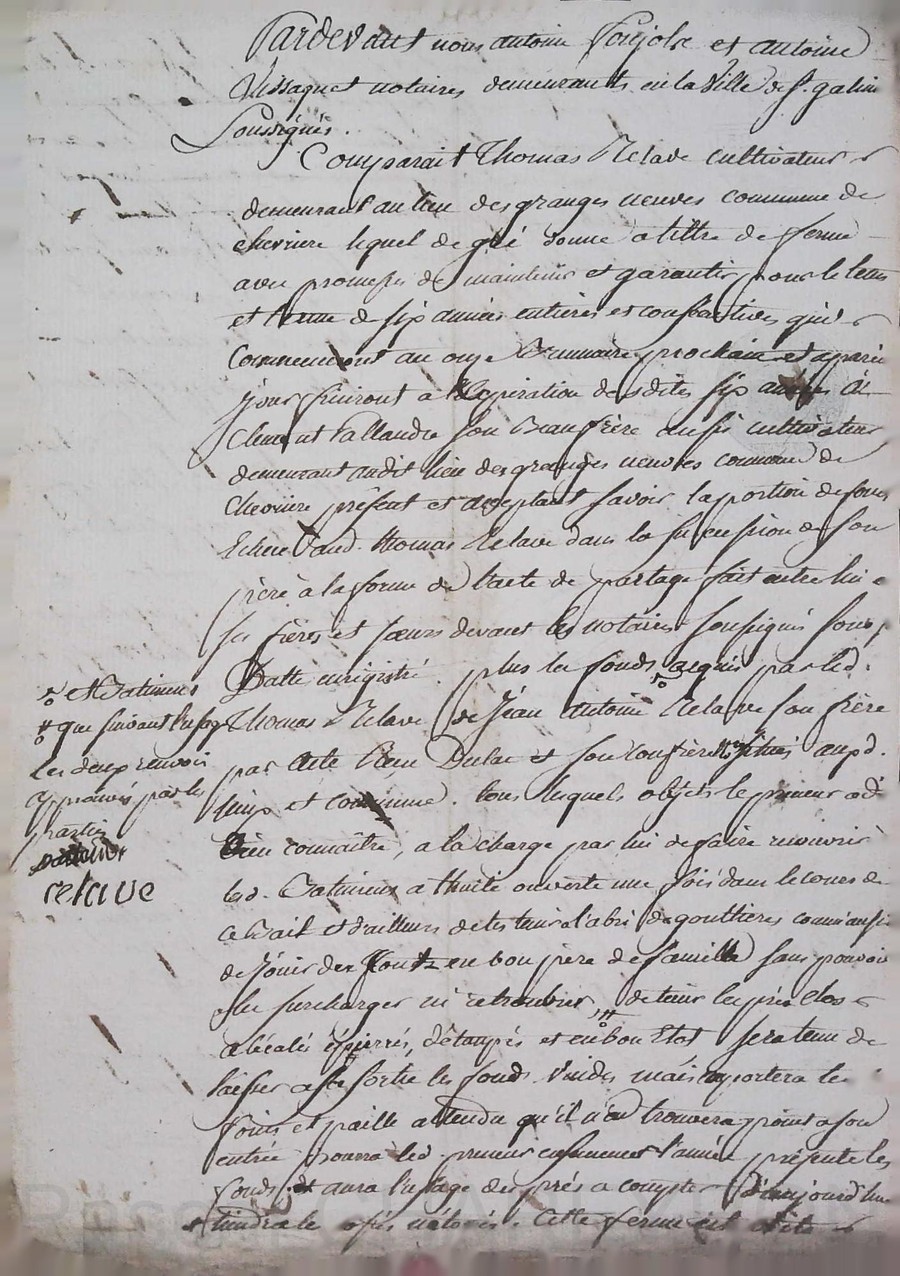 Pardevant nous antoine et antoine
notaires demeurants en la Ville de s. galmi
Soussignés.
Comparait Thomas Relave cultivateur
demeurant au lieu des granges neuves commune de
chevriere lequel de gré donne a tittre de ferme
avec promesse de maintenir et garantir pour le tems
et terme de six années entieres et consecutives qui
Commenceront au onze prochain et a pareil
jour finiront a l'Expiration desdites six années a
Clement son Beaufrère aussi cultivateur
demeurant audit lieu des granges neuves commune de
Chevriere présent et acceptant savoir la portion de fonds
Echue aud. thomas Relave dans la succession de son
père à la forme de l'acte de partage fait entre lui e
ses frères et sœurs devant les notaires soussignés sous
Datte enregistré. plus les fonds acquis par led.
Thomas Relave de Jean Antoine Relave son frère
par Acte Reçu Dulac et son confrère aud.
tous lesquels objets le preneur a d
Bien connaître, a la charge par lui de faire recouvrir
les d. Batimens a thuile ouverte une fois dans le cours de
ce Bail et d'ailleurs de les tenir a l'abri de gouttieres comm'aussi
de Jouir des fonds en bon père de famille sans pouvoir
les surcharger ni de tenir les prés clos
épierrés, détaupés et en bon Etat sera tenu de
laisser a sa sortie les fonds vuides mais emportera les
foins et paille attendu qu'il n'en trouvera point a son
entrée pourra led. preneur ensemencer l'année présente les
fonds et aura l'usage des prés a compter d'aujourd'hui
Cette ferme est
et Batimens
que suivant l'usage
les deux renvois
approuvés par les
parties
relave